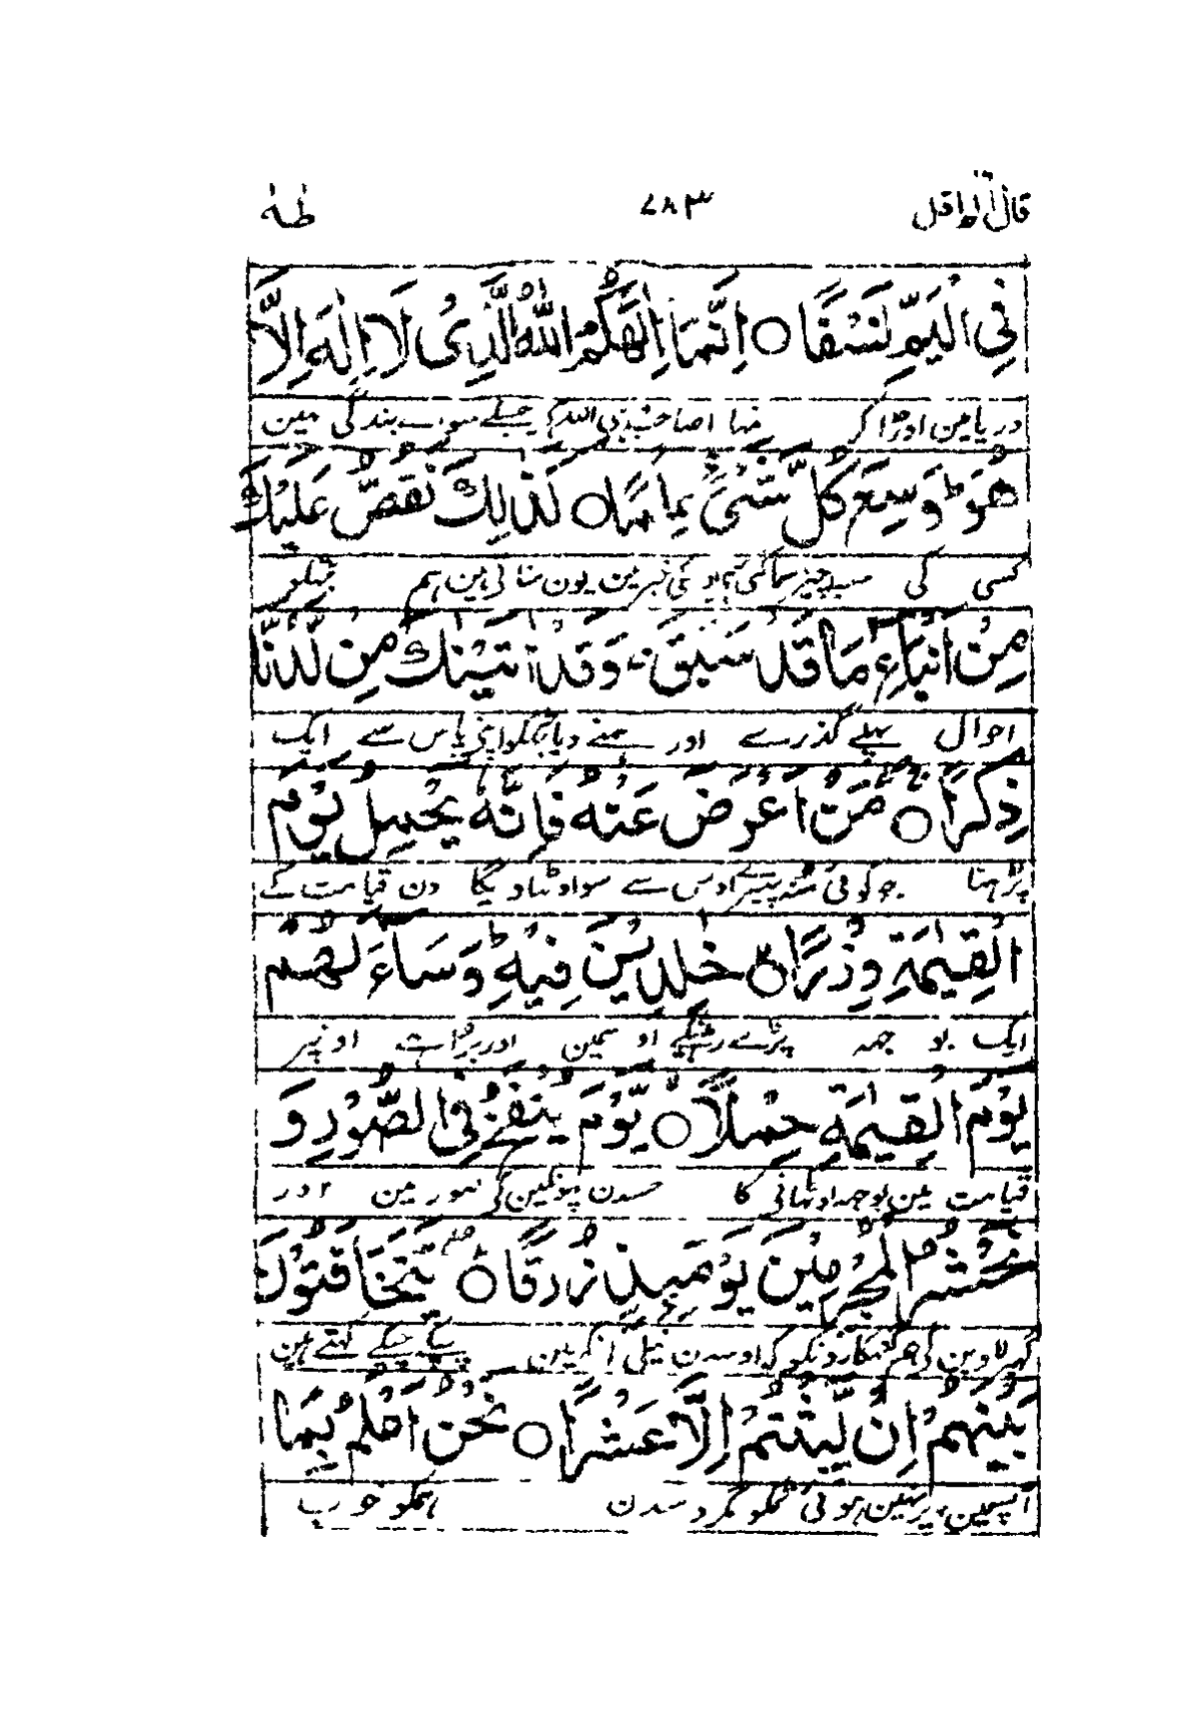 قال الم اقل ٤٨٣ طٰهٰ
فِي الْيَمِّ نَسْفًا ○ اِنَّمَاۤ اِلٰهُكُمُ اللّٰهُ الَّذِىْ لَاۤ اِلٰهَ اِلَّا
دریا مین اوڑا کر بندگی مین
هُوَ ؕ وَسِعَ كُلَّ شَىْءٍ عِلْمًا ○ كَذٰلِكَ نَقُصُّ عَلَيْكَ
کسی کی سب چیز یون سناتی ہین ہم تجکو
مِنْ اَنْۢبَآءِ مَا قَدْ سَبَقَ ۚ وَقَدْ اٰتَيْنٰكَ مِنْ لَّدُنَّا
احوال پہلے گذرے اور ہمنے دیا تجکو اپنی پاس سے ایک
ذِكْرًا ○ مَنْ اَعْرَضَ عَنْهُ فَاِنَّهٗ يَحْمِلُ يَوْمَ
پڑہنا جو کوئی منہ پھیرے اوس سے سو اوٹھاویگا دن قیامت کے
الْقِيٰمَةِ وِزْرًا ○ خٰلِدِيْنَ فِيْهِ ؕ وَسَآءَ لَهُمْ
ایک بوجھ پڑے رہینگے اوسمین اور برا ہے اونپر
يَوْمَ الْقِيٰمَةِ حِمْلًا ○ يَّوْمَ يُنْفَخُ فِى الصُّوْرِ وَ
قیامت مین بوجھ اوٹھانی کا جسدن پھونکین گی صور مین اور
نَحْشُرُ الْمُجْرِمِيْنَ يَوْمَئِذٍ زُرْقًا ○ يَّتَخَافَتُوْنَ
گھیر لاوین گی ہم گنہگارونکو اوسدن نیلی آنکھین چپکے چپکے کہتے ہین
بَيْنَهُمْ اِنْ لَّبِثْتُمْ اِلَّا عَشْرًا ○ نَحْنُ اَعْلَمُ بِمَا
آپسمین دیر نہین ہوئی تمکو مگر دسدن ہمکو خوب